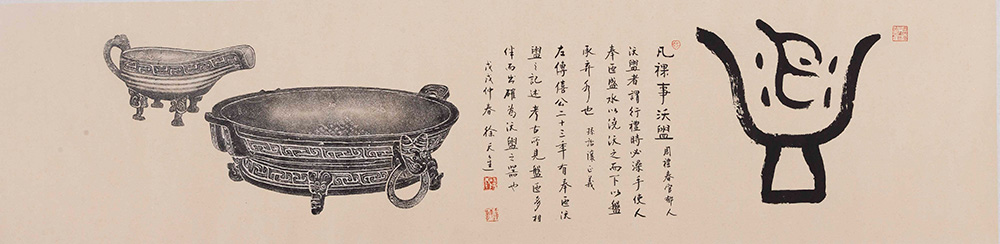 凡祼事沃盥 周禮春官郁人
沃盥者謂行禮時必澡手使人
奉匜盛水以澆沃之而下以盤
承弃水也 孫詒讓正義
左傳僖公二十三年有奉匜沃
盥之記述考古所見盤匜多相
伴而出確為沃盥之器也
戊戌仲春 徐天進